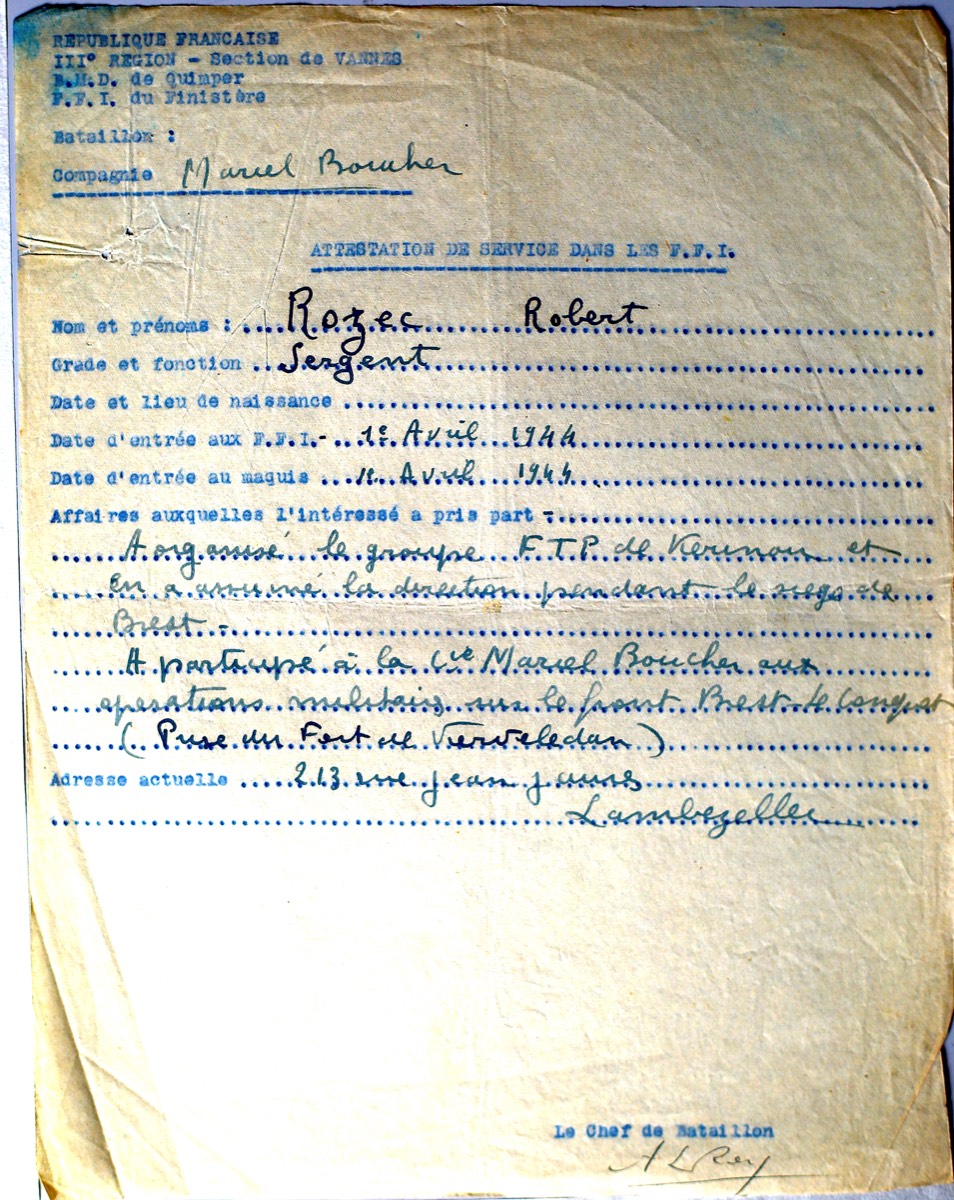 REPUBLIQUE FRANCAISE
III° REGION - Section de VANNES
B.M.D. de Quimper
F.F.I. du Finistère
Bataillon :
Compagnie Marcel Boucher
ATTESTATION DE SERVICE DANS LES F.F.I.
Nom et prénoms : Rozec Robert
Grade et fonction Sergent
Date et lieu de naissance
Date d'entrée aux F.F.I.- 1er Avril 1944
Date d'entrée au maquis 1er Avril 1944
Affaires auxquelles l'intéressé a pris part -
A organisé le groupe F.T.P. de Kerinou et
en a assumé la direction pendant le siege de
Brest -
A participé à la Cie Marcel Boucher aux
operations militaires sur le front Brest-Le Conquet
(Prise du Fort de
Adresse actuelle 213 rue jean jaures
Lambezellec
Le Chef de Bataillon